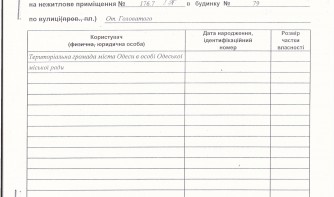 на нежитлове приміщення № 176.7 в будинку № 79
по вулиці(пров., пл.) От. Головатого
Користувач
(физична, юридична особа)
Дата народження,
ідентифікаційний
номер
Розмір
частки
власності
Територіальна громада міста Одеси в особі Одеської
міської ради